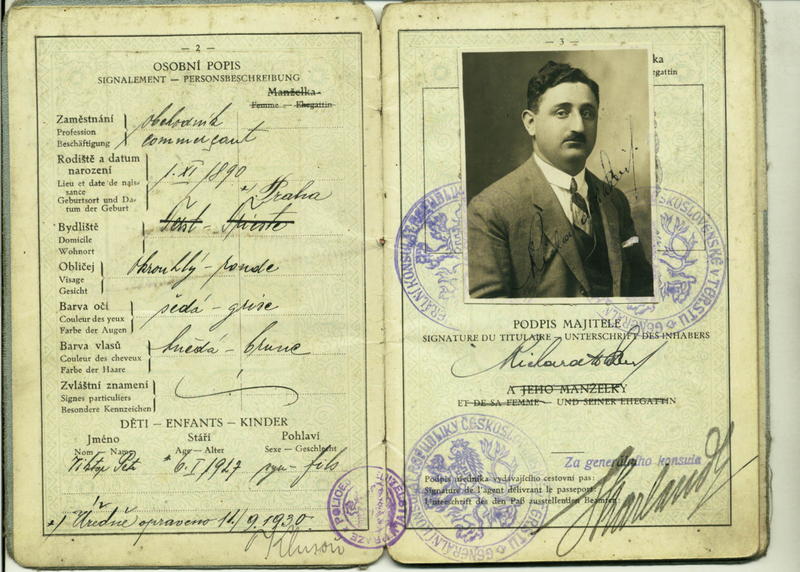 — 2 —
OSOBNÍ POPIS
SIGNALEMENT — PERSONSBESCHREIBUNG
Manželka
Femme — Ehegattin
Zaměstnání
Profession
Beschäftigung
obchodník
commerçant
Rodiště a datum
narození
Lieu et date de nais-
sance
Geburtsort und Da-
tum der Geburt
1. XI. 1890
*/ Praha
Bydliště
Domicile
Wohnort
Terst - Trieste
Obličej
Visage
Gesicht
okrouhlý - ronde
Barva očí
Couleur des yeux
Farbe der Augen
šedá - grise
Barva vlasů
Couleur des cheveux
Farbe der Haare
hnědá - brune
Zvláštní znamení
Signes particuliers
Besondere Kennzeichen
DĚTI — ENFANTS — KINDER
Jméno Stáří Pohlaví
Nom — Name Age — Alter Sexe — Geschlecht
Petr * 6. I. 1927 syn - fils
*/ Úředně opraveno 12/9 1930.
— 3 —
ka
hegattin
PODPIS MAJITELE
SIGNATURE DU TITULAIRE — UNTERSCHRIFT DES INHABERS
A JEHO MANŽELKY
ET DE SA FEMME — UND SEINER EHEGATTIN
Za generálního konsula
Podpis úředníka vydávajícího cestovní pas:
Signature de l'agent délivrant le passeport:
Unterschrift des den Paß ausstellenden Beamten: